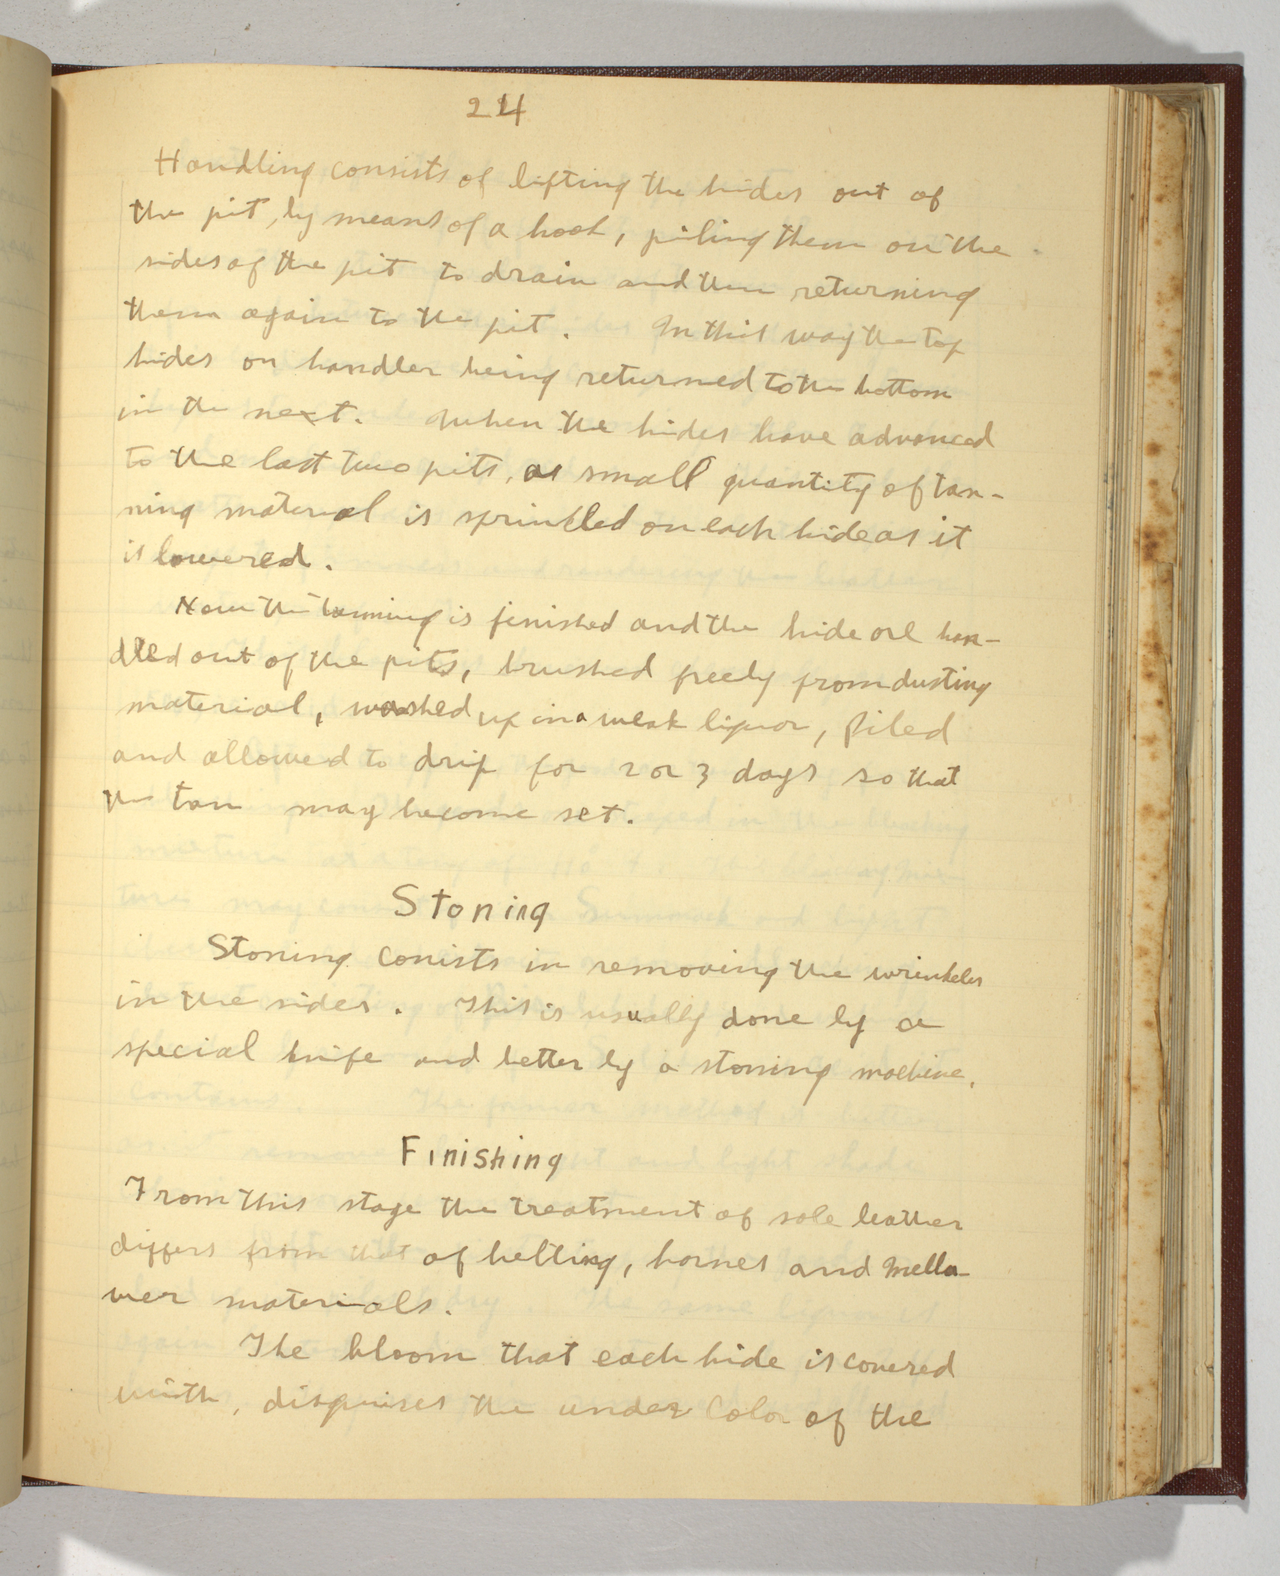 24
Handling consists of lifting the hides out of
the pit, by means of a hook, piling them on the
sides of the pit to drain and then returning
them again to the pit. In this way the top
hides on handler being returned to the bottom
in the next. When the hides have advanced
to the last two pits, as small quantity of tan-
ning material is sprinkled on each hide as it
is lowered.
Now the tanning is finished and the hide are han-
dled out of the pits, brushed freely from dusting
material, washed up in a weak liquor, piled
and allowed to drip for 2 or 3 days so that
the tan may become set.
Stoning
Stoning conists in removing the wrinkeles
in the sides. This is usually done by a
special knife and better by a stoning machine.
Finishing
From this stage the treatment of sole leather
differs from that of belting, harnes and mello-
wer materials.
The bloom that each hide is covered
with, disguises the under color of the